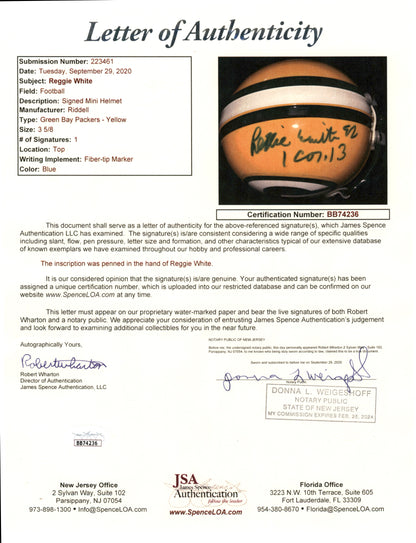 Letter of Authenticity
Submission Number: 223461
Date: Tuesday, September 29, 2020
Subject: Reggie White
Field: Football
Description: Signed Mini Helmet
Manufacturer: Riddell
Type: Green Bay Packers - Yellow
Size: 3 5/8
# of Signatures: 1
Location: Top
Writing Implement: Fiber-tip Marker
Color: Blue
Reggie White 92
1 Cor. 13
Certification Number: BB74236
This document shall serve as a letter of authenticity for the above-referenced signature(s), which James Spence
Authentication LLC has examined. The signature(s) is/are consistent considering a wide range of specific qualities
including slant, flow, pen pressure, letter size and formation, and other characteristics typical of our extensive database
of known exemplars we have examined throughout our hobby and professional careers.
The inscription was penned in the hand of Reggie White.
It is our considered opinion that the signature(s) is/are genuine. Your authenticated signature(s) has been
assigned a unique certification number, which is uploaded into our restricted database and can be confirmed on our
website www.SpenceLOA.com at any time.
This letter must appear on our proprietary water-marked paper and bear the live signatures of both Robert
Wharton and a notary public. We appreciate your consideration of entrusting James Spence Authentication's judgement
and look forward to examining additional collectibles for you in the near future.
Autographically Yours,
Robert Wharton
Robert Wharton
Director of Authentication
James Spence Authentication, LLC
NOTARY PUBLIC OF NEW JERSEY
Parsippany, NJ 07054
Sworn and subscribed to before me on September 29, 2020
Donna L Weigeshoff
Notary Public
DONNA L. WEIGESHOFF
NOTARY PUBLIC
STATE OF NEW JERSEY
MY COMMISSION EXPIRES FEB. 25, 2024
BB74236
New Jersey Office
2 Sylvan Way, Suite 102
Parsippany, NJ 07054
973-898-1300 • Info@SpenceLOA.com
JSA
James Spence
Authentication
follow the leader
www.SpenceLOA.com
Florida Office
3223 N.W. 10th Terrace, Suite 605
Fort Lauderdale, FL 33309
954-380-8670 • Florida@SpenceLOA.com